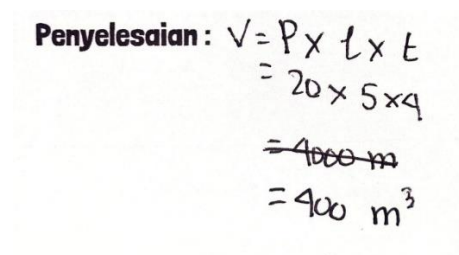 Penyelesaian : V = P x l x t
= 20 x 5 x 4
= 4000 m
= 400 m³